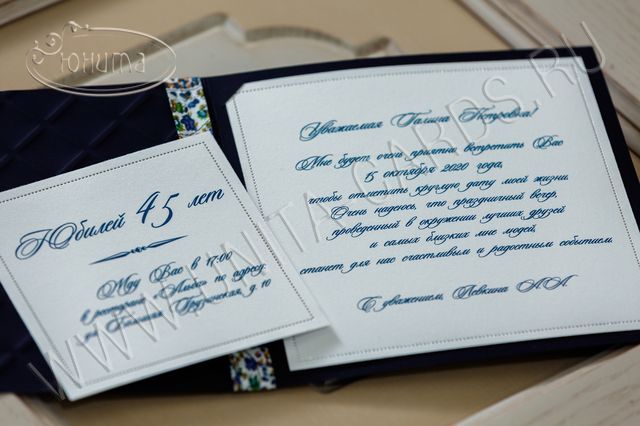 Юнита
Юбилей 45 лет
Жду Вас в 17:00
в ресторане «Альба» по адресу:
ул. Большая Грузинская, д. 10
Уважаемая Галина Петровна!
Мне будет очень приятно встретить Вас
15 октября 2020 года,
чтобы отметить круглую дату моей жизни.
Очень надеюсь, что праздничный вечер,
проведенный в окружении лучших друзей
и самых близких мне людей,
станет для нас счастливым и радостным событием.
С уважением, Левкина А.А.
WWW.UNITA-CARDS.RU